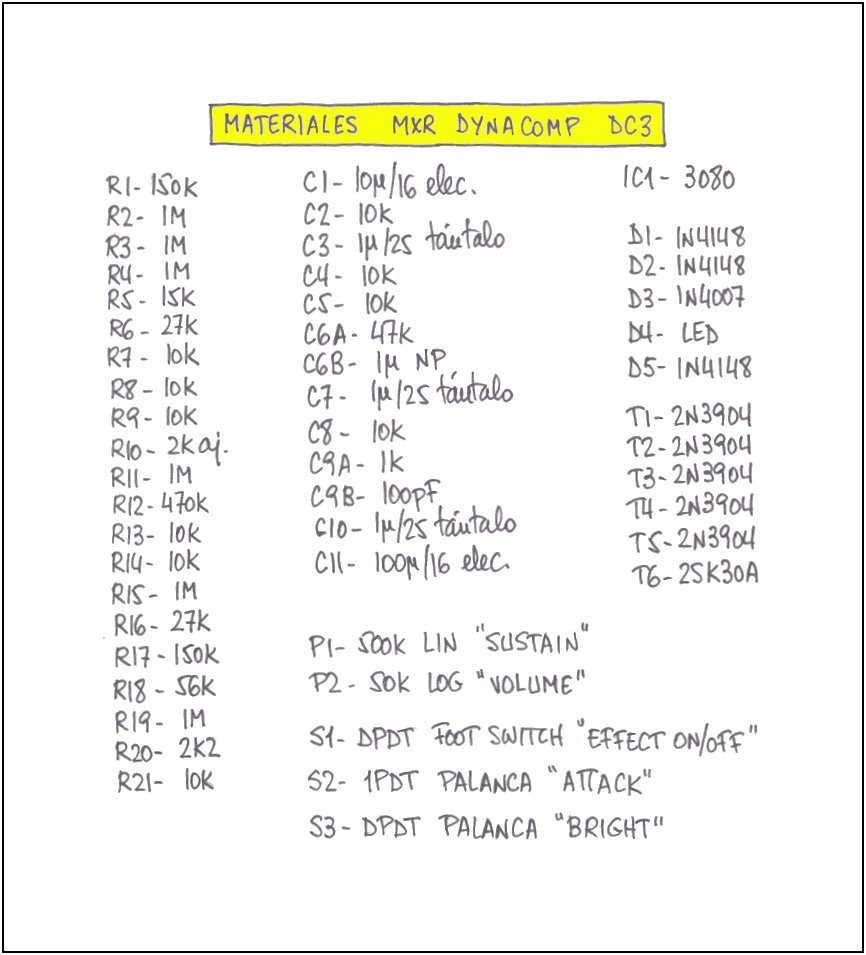 MATERIALES MXR DYNACOMP DC3
R1- 150K
R2- 1M
R3- 1M
R4- 1M
R5- 15K
R6- 27K
R7- 10K
R8- 10K
R9- 10K
R10- 2K aj.
R11- 1M
R12- 470K
R13- 10K
R14- 10K
R15- 1M
R16- 27K
R17- 150K
R18- 56K
R19- 1M
R20- 2K2
R21- 10K
C1- 10µ/16 elec.
C2- 10K
C3- 1µ/25 tántalo
C4- 10K
C5- 10K
C6A- 47K
C6B- 1µ NP
C7- 1µ/25 tántalo
C8- 10K
C9A- 1K
C9B- 100pF
C10- 1µ/25 tántalo
C11- 100µ/16 elec.
IC1- 3080
D1- 1N4148
D2- 1N4148
D3- 1N4007
D4- LED
D5- 1N4148
T1- 2N3904
T2- 2N3904
T3- 2N3904
T4- 2N3904
T5- 2N3904
T6- 2SK30A
P1- 500K LIN "SUSTAIN"
P2- 50K LOG "VOLUME"
S1- DPDT FOOT SWITCH "EFFECT ON/OFF"
S2- 1PDT PALANCA "ATTACK"
S3- DPDT PALANCA "BRIGHT"